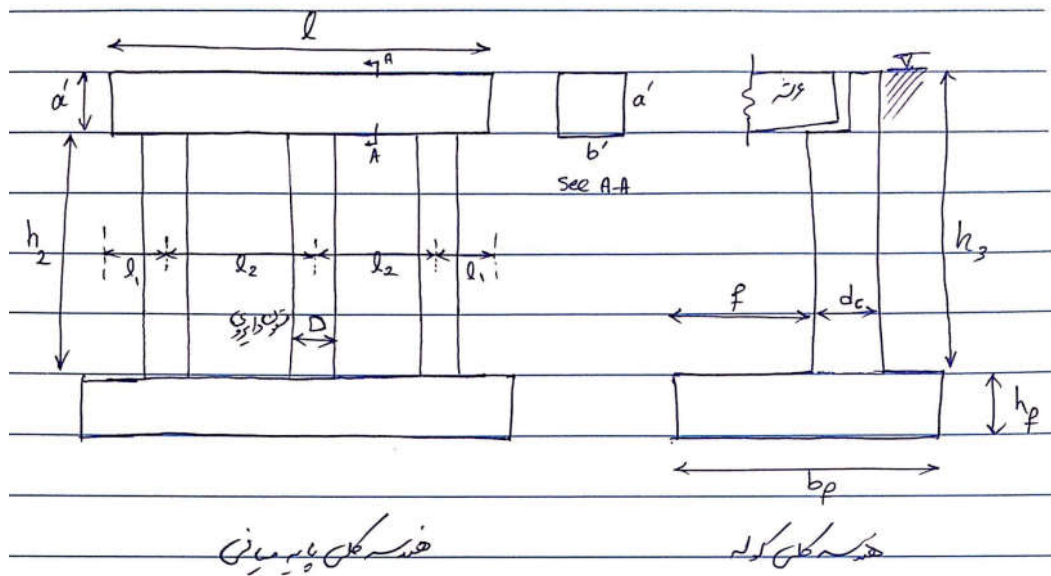 l
A
a'
a'
عرشه
A
b'
See A-A
h₂
h₃
l₁
l₂
l₂
l₁
ستون دایروی
D
f
dc
hf
bf
هندسه کلی پایه میانی
هندسه کلی کوله